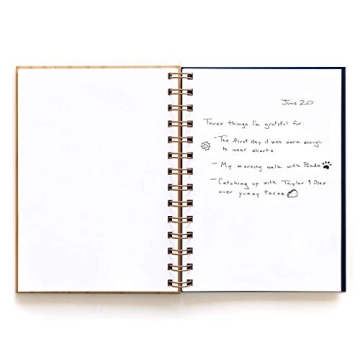 June 20
Three things I'm grateful for:
- The first day it was warm enough
to wear shorts
- My morning walk with Panda
- Catching up with Taylor & Alex
over yummy tacos